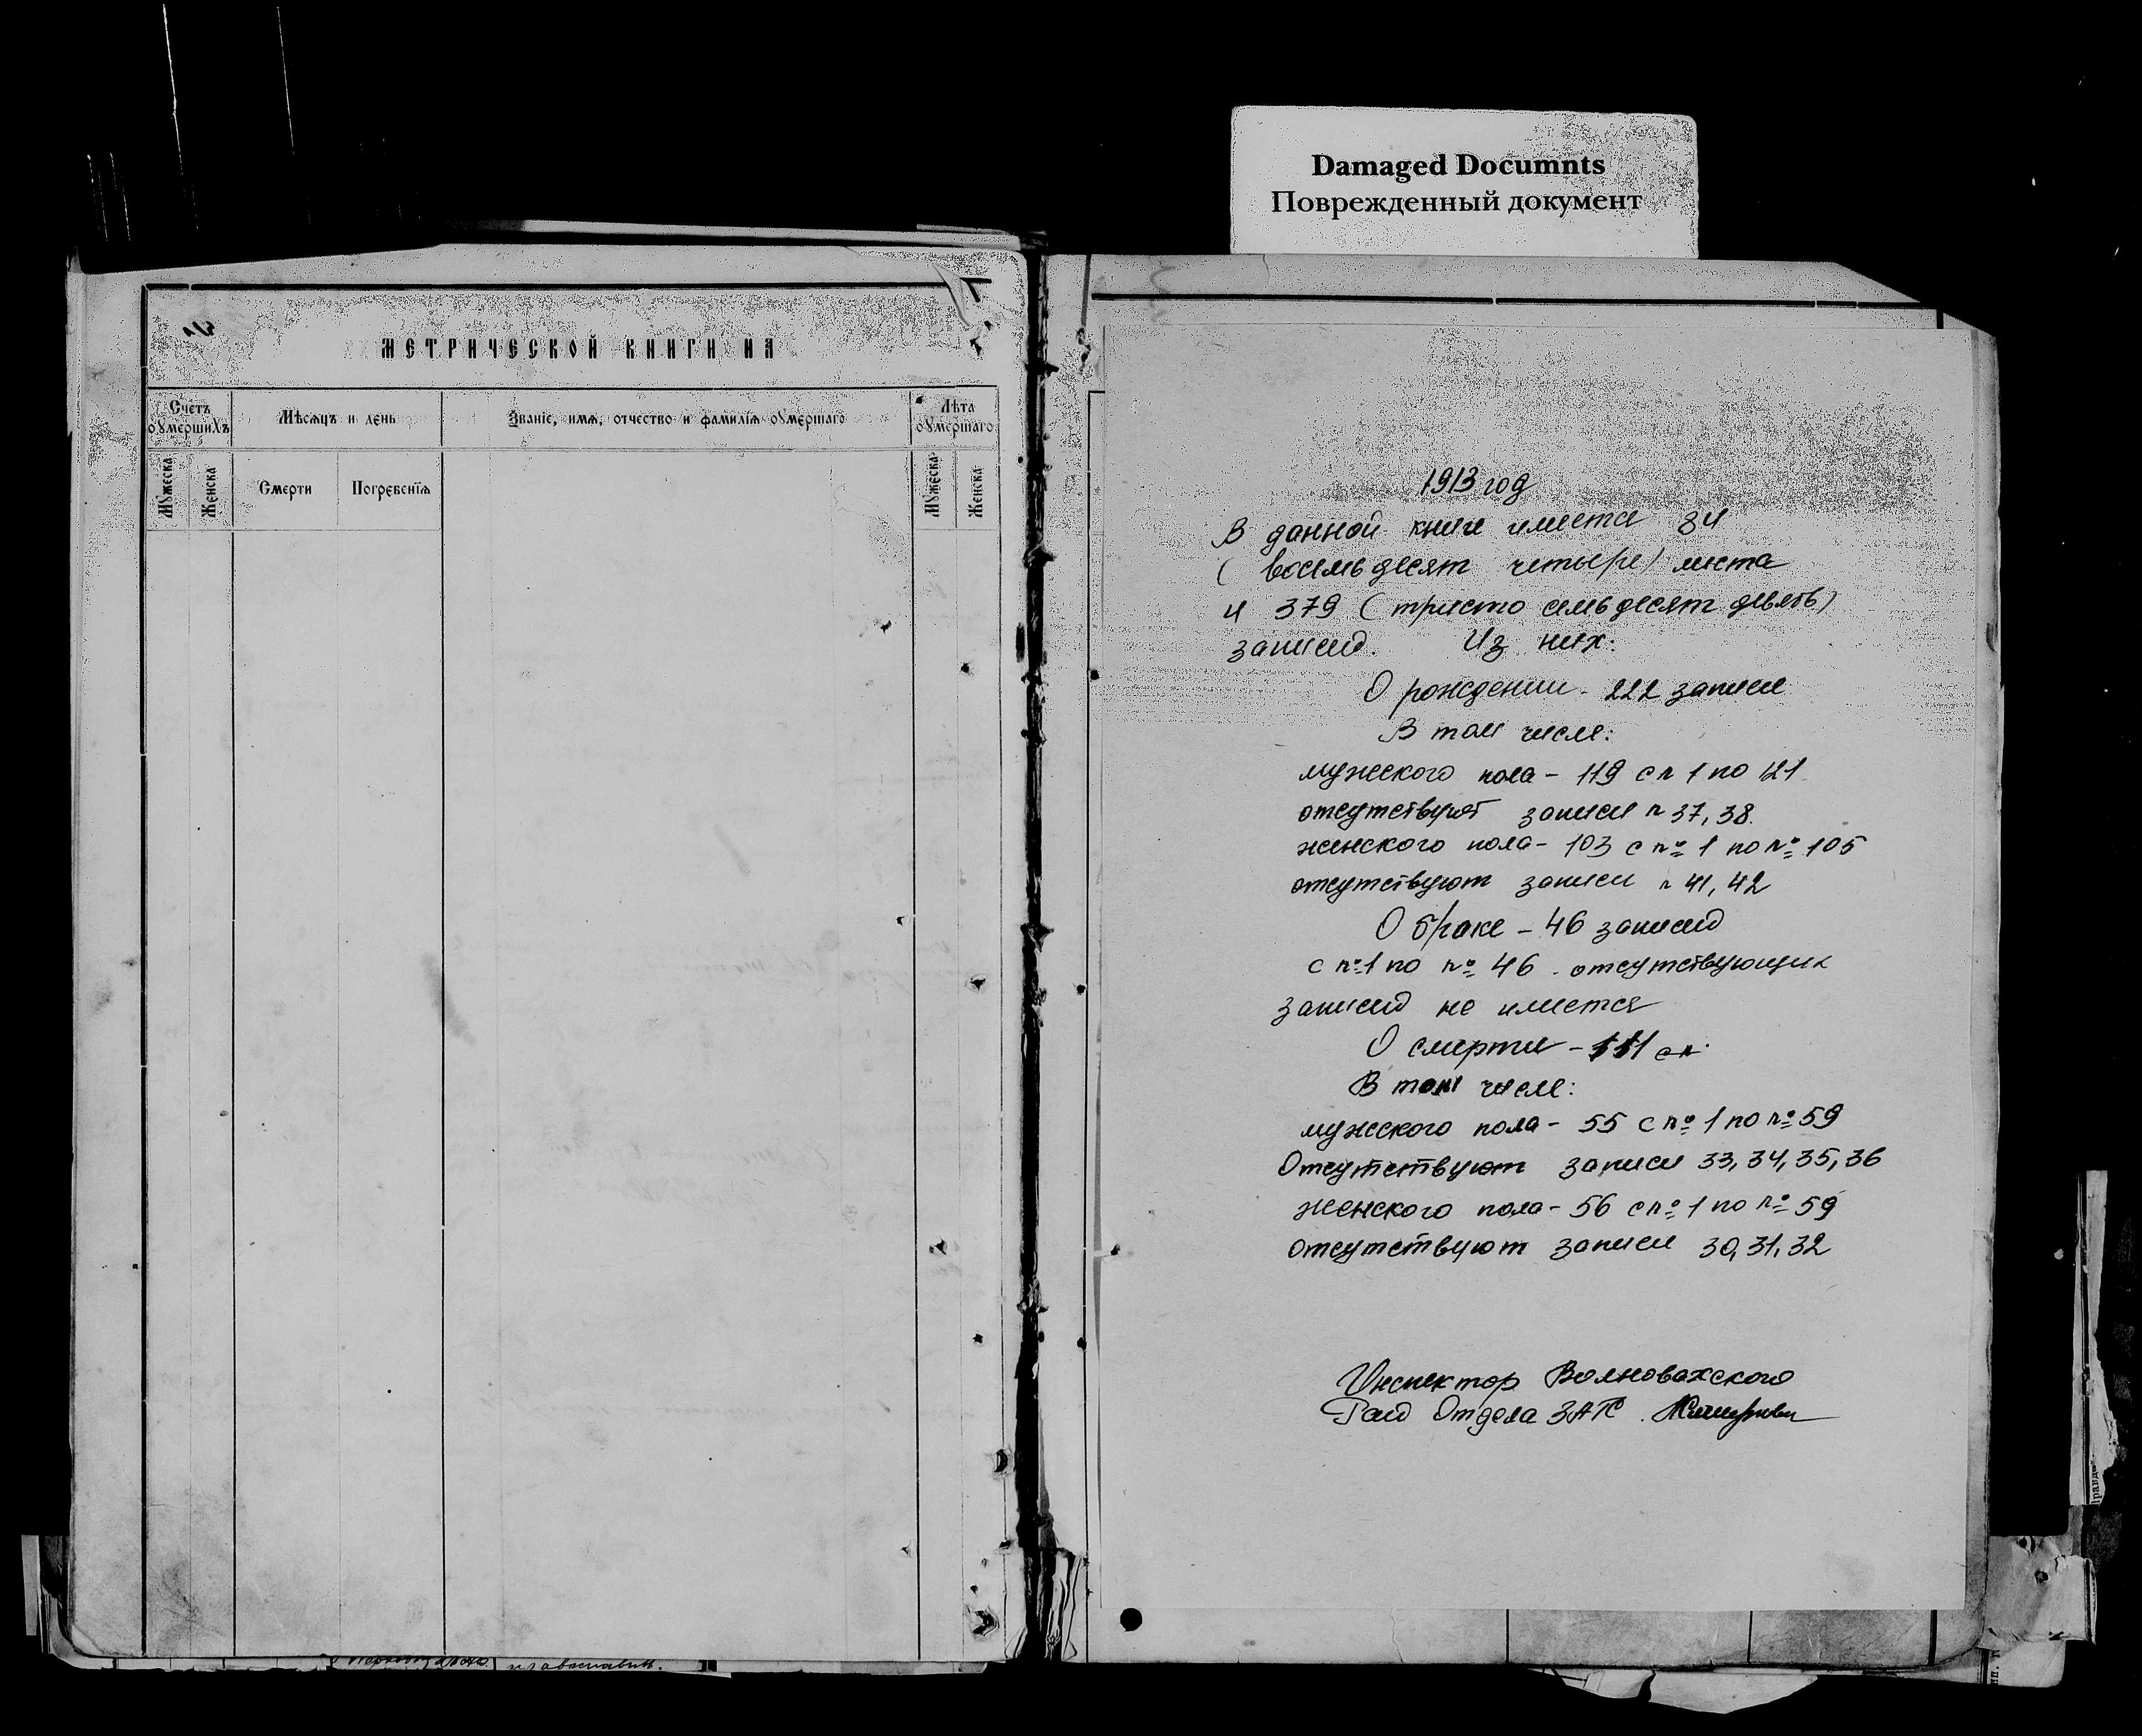 Damaged Documnts
Поврежденный документ
МЕТРИЧЕСКОЙ КНИГИ НА
Счетъ оумершихъ
Мѣсяцъ и день
Званіе, имя, отчество и фамилія оумершаго
Лѣта оумершаго
Мужеска
Женска
Смерти
Погребенія
Мужеска
Женска
1913 год
В данной книге имеется 84
(восемьдесят четыре) листа
и 379 (тристо семьдесят девять)
записей. Из них:
О рождении - 222 записи
В том числе:
мужского пола - 119 с № 1 по 121
отсутствуют записи № 37, 38.
женского пола - 103 с № 1 по № 105
отсутствуют записи № 41, 42
О браке - 46 записей
с № 1 по № 46 . отсутствующих
записей не имеется
О смерти - 111 с №
В том числе:
мужского пола - 55 с № 1 по № 59
Отсутствуют записи 33, 34, 35, 36
женского пола - 56 с № 1 по № 59
отсутствуют записи 30, 31, 32
Инспектор Волновахского
Рай Отдела ЗАГС